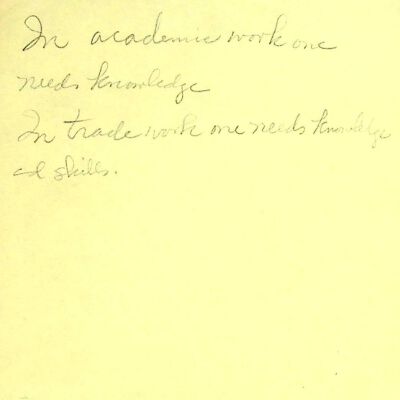 In academic work one
needs knowledge
In trade work one needs knowledge
and skills.